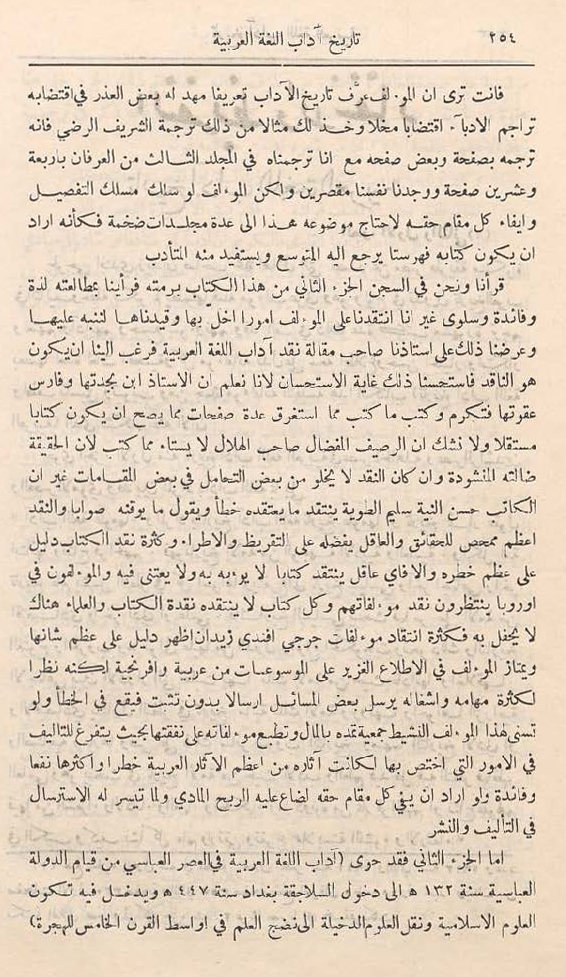 ٢٥٤
تاريخ آداب اللغة العربية
فانت ترى ان المؤلف عرَّف تاريخ الآداب تعريفا مهد له بعض العذر في اقتضابه
تراجم الادباء اقتضابا مخلا وخذ لك مثالا من ذلك ترجمة الشريف الرضي فانه
ترجمه بصفحة وبعض صفحه مع انا ترجمناه في المجلد الثالث من العرفان باربعة
وعشرين صفحة ووجدنا نفسنا مقصرين ولكن المؤلف لو سلك مسلك التفصيل
وايفاء كل مقام حقه لاحتاج موضوعه هذا الى عدة مجلدات ضخمة فكأنه اراد
ان يكون كتابه فهرستا يرجع اليه المتوسع ويستفيد منه المتأدب
قرأنا ونحن في السجن الجزء الثاني من هذا الكتاب برمته فرأينا بمطالعته لذة
وفائدة وسلوى غير انا انتقدنا على المؤلف امورا اخلّ بها وقيدناها لننبه عليها
وعرضنا ذلك على استاذنا صاحب مقالة نقد آداب اللغة العربية فرغب الينا ان يكون
هو الناقد فاستحسنا ذلك غاية الاستحسان لانا نعلم ان الاستاذ ابن بجدتها وفارس
عقوتها فتكرم وكتب ما كتب مما استغرق عدة صفحات مما يصح ان يكون كتابا
مستقلا ولا نشك ان الرصيف المفضال صاحب الهلال لا يستاء مما كتب لان الحقيقة
ضالته المنشودة وان كان النقد لا يخلو من بعض التحامل في بعض المقامات غير ان
الكاتب حسن النية سليم الطوية ينتقد ما يعتقده خطأ ويقول ما يوقنه صوابا والنقد
اعظم ممحص للحقائق والعاقل يفضله على التقريظ والاطراء وكثرة نقد الكتاب دليل
على عظم خطره والا فاي عاقل ينتقد كتابا لا يوءبه به ولا يعتنى فيه والمؤلفون في
اوروبا ينتظرون نقد مؤلفاتهم وكل كتاب لا ينتقده نقدة الكتاب والعلماء هناك
لا يحفل به فكثرة انتقاد مؤلفات جرجي افندي زيدان اظهر دليل على عظم شانها
ويمتاز المؤلف في الاطلاع الغزير على الموسوعات من عربية وافرنجية لكنه نظرا
لكثرة مهامه واشغاله يرسل بعض المسائل ارسالا بدون تثبت فيقع في الخطأ ولو
تسنى لهذا المؤلف النشيط جمعية تمده بالمال وتطبع مؤلفاته على نفقتها بحيث يتفرغ للتاليف
في الامور التي اختص بها لكانت آثاره من اعظم الآثار العربية خطرا واكثرها نفعا
وفائدة ولو اراد ان يفي كل مقام حقه لضاع عليه الربح المادي ولما تيسر له الاسترسال
في التأليف والنشر
اما الجزء الثاني فقد حوى (آداب اللغة العربية في العصر العباسي من قيام الدولة
العباسية سنة ١٣٢ ه الى دخول السلاجقة بغداد سنة ٤٤٧ ه ويدخل فيه تكون
العلوم الاسلامية ونقل العلوم الدخيلة الى نضج العلم في اواسط القرن الخامس للهجرة)